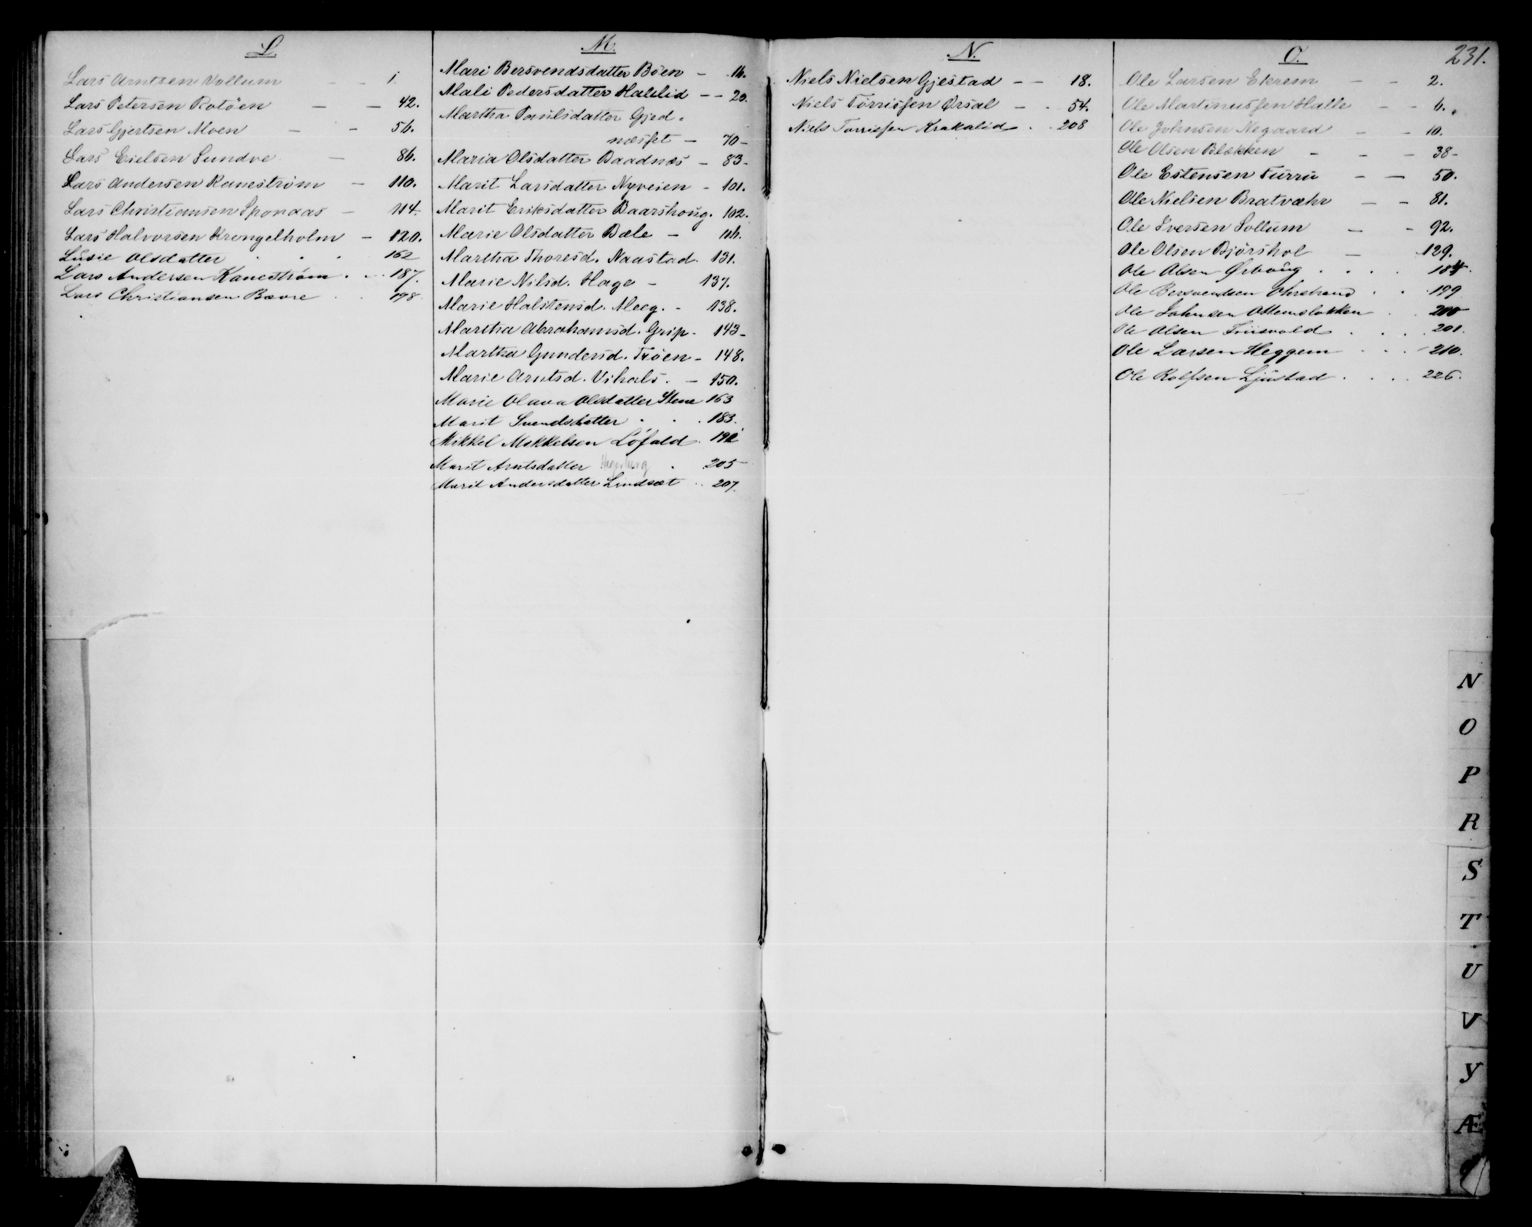 L.
Lars Arntsen Vollum – – 1
Lars Petersen Rotöen – – 42.
Lars Gjertsen Moen – – 56.
Lars Eielsen Sundve – 86.
Lars Andersen Kanestrøm – 110.
Lars Christiansen Sponaas – 114.
Lars Halvorsen Krengelholm – 120.
Lusie Olsdatter . . . 162
Lars Andersen Kanestrøm . . . 187.
Lars Christiansen Bævre . . 198
M.
Mari Bersvendsdatter Böen – 16.
Mali Pedersdatter Halslid – – 20.
Martha Paulsdatter Gjed-
næsset – 70 –
Maria Olsdatter Baadnæs – 83 –
Marit Larsdatter Nyveien – 101.
Marit Eriksdatter Baarshoug. 102.
Marie Olsdatter Bæle – 106.
Martha Thoresd. Naastad. 131.
Marie Nilsd. Hage – 137.
Marie Halstensd. Meeg. – 138.
Martha Abrahamsd. Grip. – 143 –
Martha Gundersd. Trøen – 148.
Marie Arntsd. Vihals. – 150.
Marie Olava Olsdatter Stene 163
Marit Svendsdatter . . . 183.
Mikkel Mekkelsen Löfald . 192
Marit Arntsdatter . 205
Marit Andersdatter Lindsæt . . 207.
N.
Niels Nielsen Gjestad – – 18.
Niels Torrissen Ørsal – . 54.
Niels Torrissen Krakalid . . 208
O.
231.
Ole Larsen Ekrem – – 2.
Ole Martinussen Halle – – 6.
Ole Johnsen Negaard – – 10.
Ole Olsen Blekken – – – 38 –
Ole Estensen Furru – – 50.
Ole Nielsen Bratvæhr – – 81.
Ole Iversen Soltum – – 92.
Ole Olsen Bjørshol – 129.
Ole Olsen Ørboug . . . .
Ole Bersvendsen Ohrstrand . . 199
Ole Johnsen . . 200
Ole Olsen . . . 201.
Ole Larsen Heggem . . . 210.
Ole Rolfsen Ljustad . . . . 226.
N
O
P
R
S
T
U
V
Y
Æ